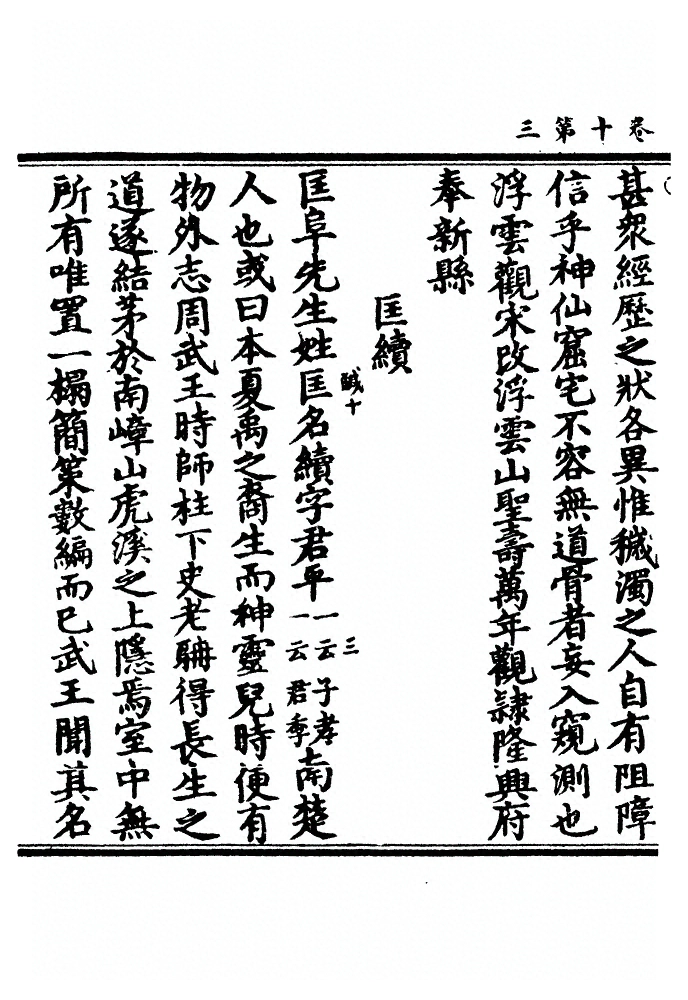 卷十第三
甚眾經歷之狀各異惟穢濁之人自有阻障
信乎神仙窟宅不容無道骨者妄入窺測也
浮雲觀宋改浮雲山聖壽萬年觀隸隆興府
奉新縣
匡續
醎十
三
匡阜先生姓匡名續字君平一云子孝一云君季南楚
人也或曰本夏禹之裔生而神靈兒時便有
物外志周武王時師柱下史老聃得長生之
道遂結茅於南嶂山虎溪之上隱焉室中無
所有唯置一榻簡策數編而已武王聞其名